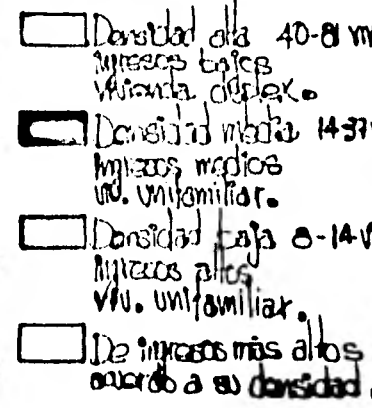 Densidad alta 40-81 m
Ingresos bajos
vivienda dúplex.
Densidad media 14-37
Ingresos medios
viv. unifamiliar.
Densidad baja 8-14 v
Ingresos altos
viv. unifamiliar.
De ingresos más altos
acuerdo a su densidad.